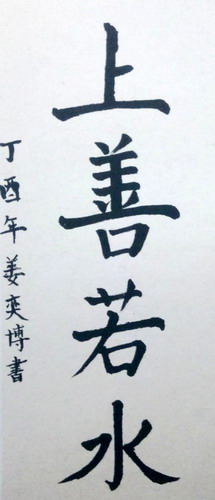 上善若水
丁酉年姜奕博書